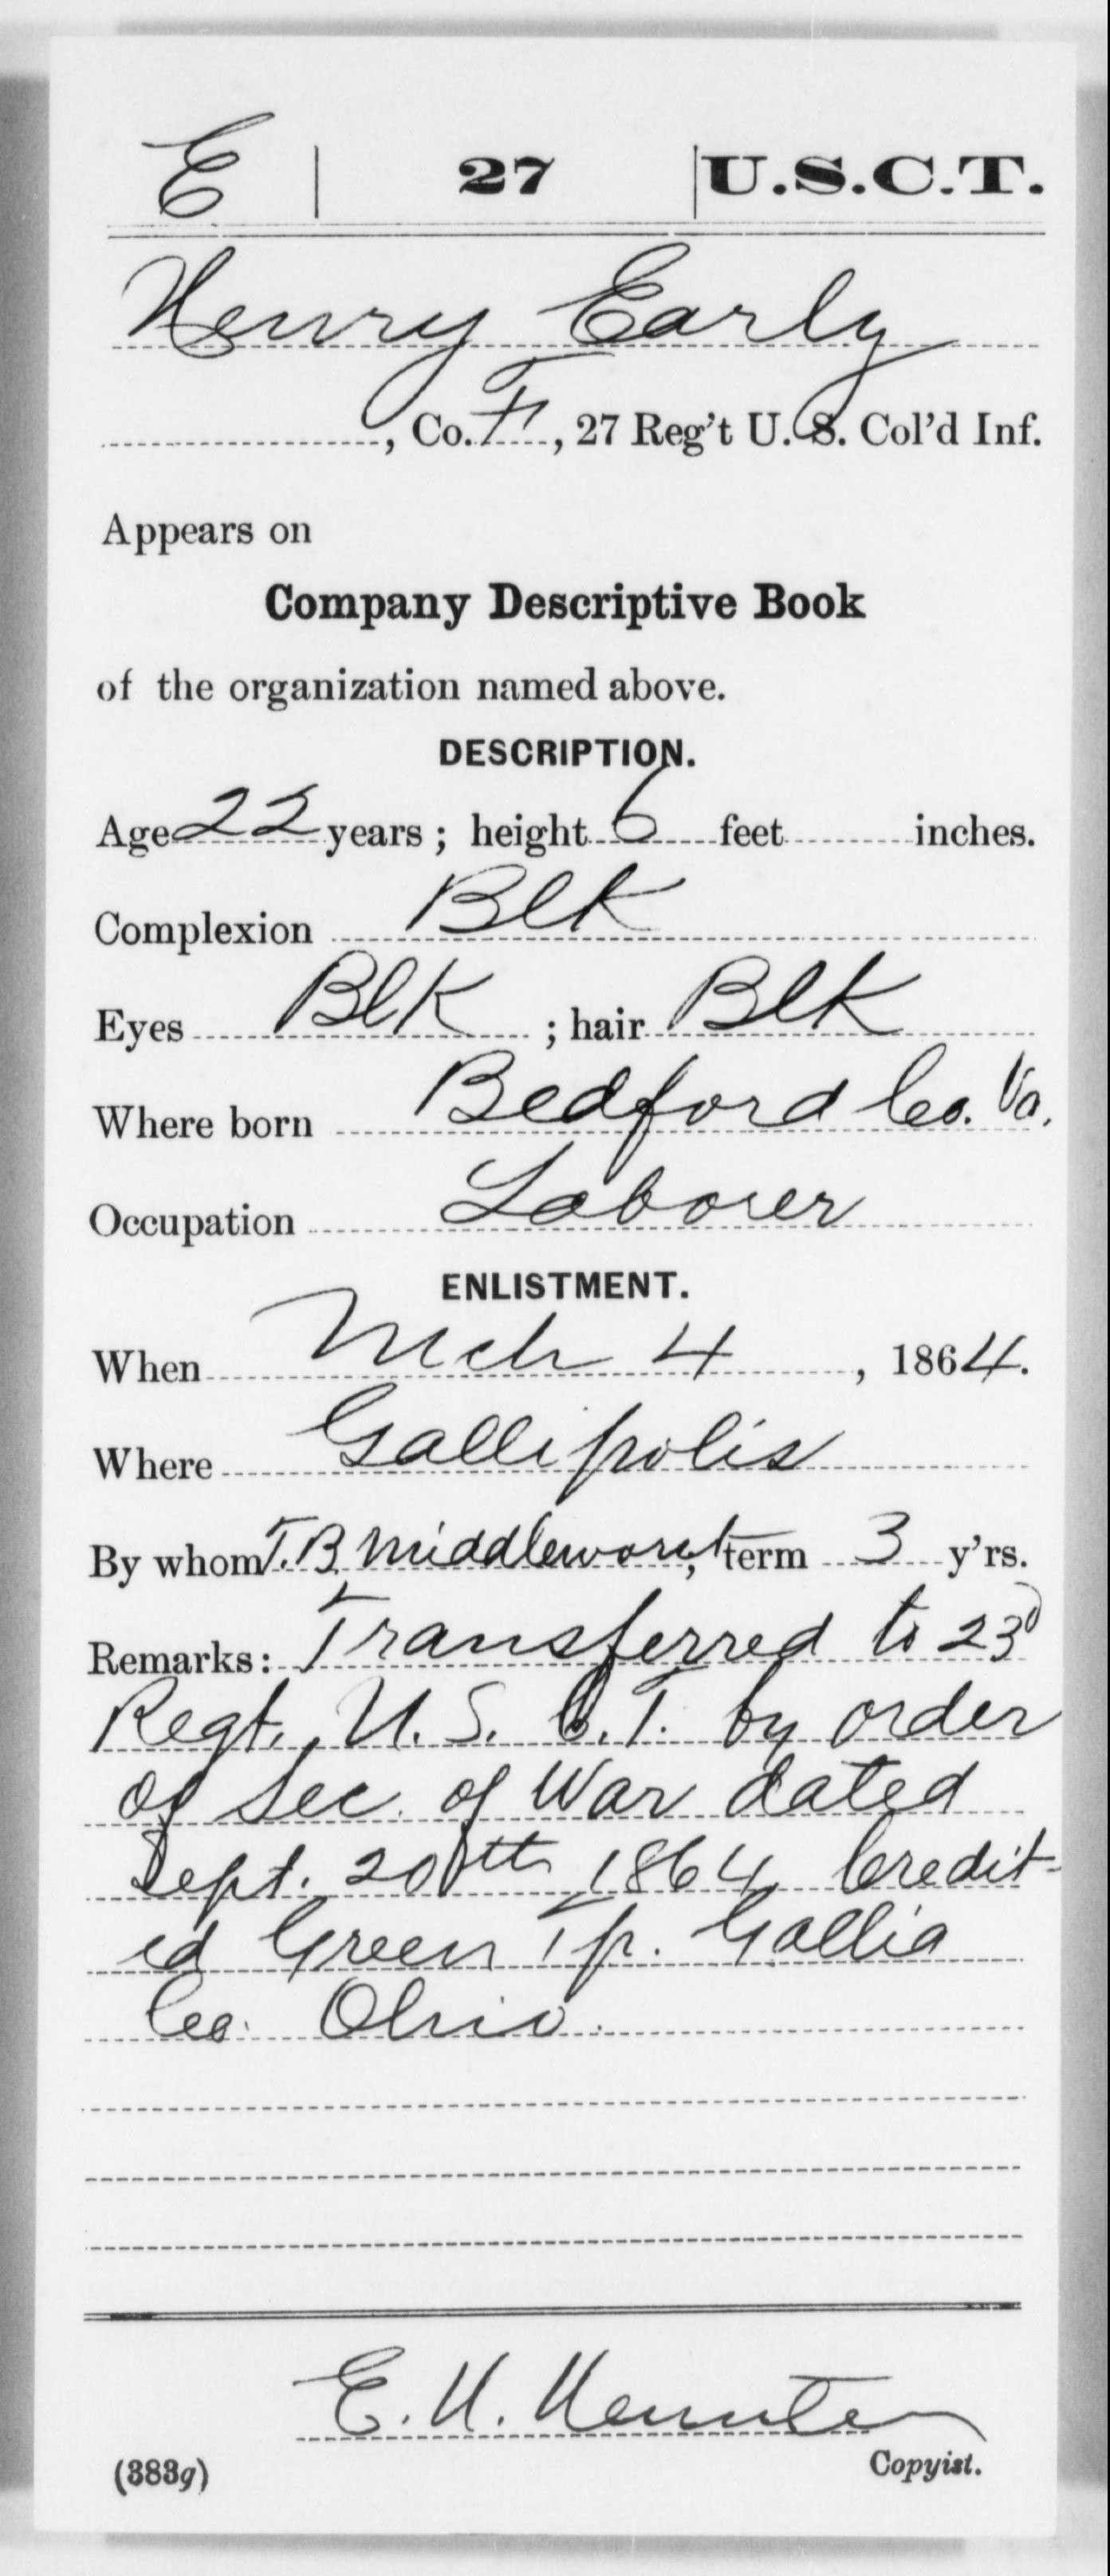 E | 27 | U.S.C.T.
Henry Early
, Co. F, 27 Reg't U. S. Col'd Inf.
Appears on
Company Descriptive Book
of the organization named above.
DESCRIPTION.
Age 22 years; height 6 feet inches.
Complexion Blk
Eyes Blk; hair Blk
Where born Bedford Co. Va.
Occupation Laborer
ENLISTMENT.
When Mch 4, 1864.
Where Gallipolis
By whom T.B. Middleworth, term 3 y'rs.
Remarks: Transferred to 23d
Regt. U. S. C.T. by order
of Sec. of War dated
Sept. 20th 1864 Credit-
ed Green Tp. Gallia
Co. Ohio.
E. H.
(383g) Copyist.